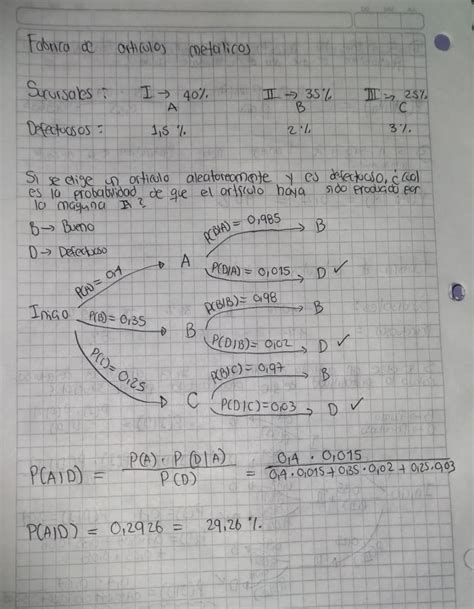 Fabrica de articulos metalicos
Sucursales: I → 40% II → 35% III → 25%
A B C
Defectuosos: 1,5% 2% 3%
Si se elige un articulo aleatoreamente y es defectuoso, ¿cual
es la probabilidad de que el articulo haya sido producido por
la maquina A?
B → Bueno
D → Defectuoso
P(B|A) = 0,985 B
P(A) = 0,4 A
P(D|A) = 0,015 D ✓
P(B|B) = 0,98 B
Inicio P(B) = 0,35 B
P(D|B) = 0,02 D ✓
P(B|C) = 0,97 B
P(C) = 0,25 C
P(D|C) = 0,03 D ✓
P(A|D) = P(A) · P(D|A) / P(D) = 0,4 · 0,015 / 0,4 · 0,015 + 0,35 · 0,02 + 0,25 · 0,03
P(A|D) = 0,2926 = 29,26%